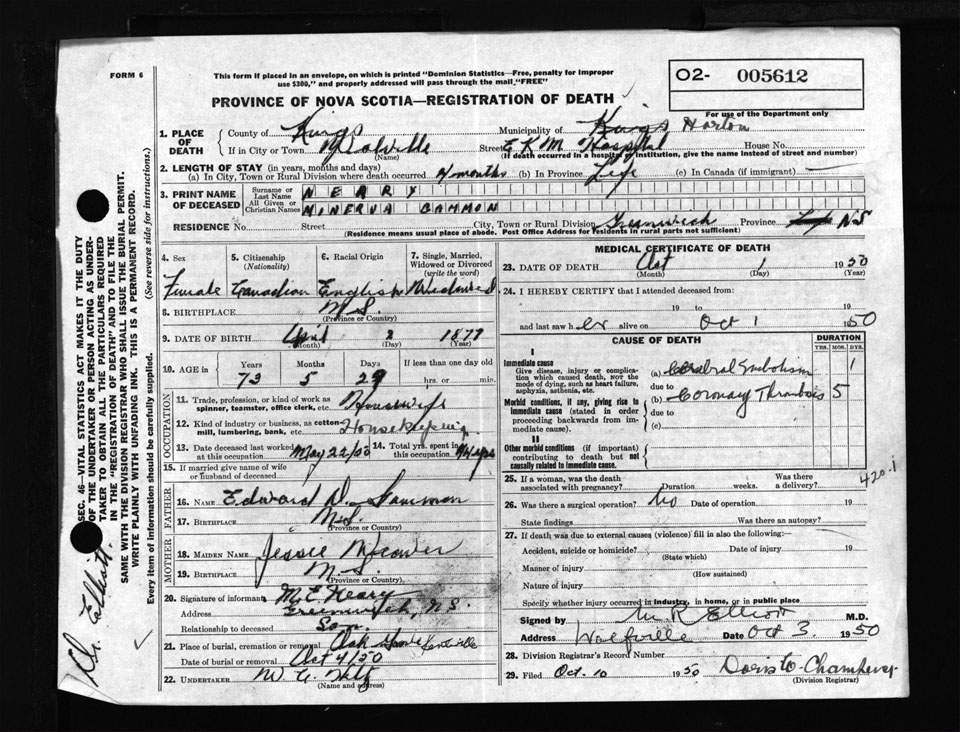 FORM 6
This form if placed in an envelope, on which is printed "Dominion Statistics—Free, penalty for improper
use $300," and properly addressed will pass through the mail "FREE"
O2- 005612
For use of the Department only
PROVINCE OF NOVA SCOTIA—REGISTRATION OF DEATH
1. PLACE OF DEATH County of Kings Municipality of Kings Horton
If in City or Town Wolfville (Name) Street E K M Hospital House No.
(If death occurred in a hospital or institution, give the name instead of street and number)
2. LENGTH OF STAY (in years, months and days)
(a) In City, Town or Rural Division where death occurred 4 months (b) In Province Life (c) In Canada (if immigrant) —
3. PRINT NAME OF DECEASED Surname or Last Name NEARY
All Given or Christian Names MINERVA GAMMON
RESIDENCE No. Street City, Town or Rural Division Greenwich Province N S
(Residence means usual place of abode. Post Office Address for residents in rural parts not sufficient)
4. Sex Female
5. Citizenship (Nationality) Canadian
6. Racial Origin English
7. Single, Married, Widowed or Divorced (write the word) Widowed
8. BIRTHPLACE N S. (Province or Country)
9. DATE OF BIRTH April (Month) 2 (Day) 1877 (Year)
10. AGE in Years 73 Months 5 Days 29 If less than one day old hrs. or min.
OCCUPATION
11. Trade, profession, or kind of work as spinner, teamster, office clerk, etc. Housewife
12. Kind of industry or business, as cotton mill, lumbering, bank, etc. Housekeeping
13. Date deceased last worked at this occupation May 22/50 14. Total yrs. spent in this occupation 44 yrs
15. If married give name of wife or husband of deceased
FATHER
16. NAME Edward D. Gammon
17. BIRTHPLACE N.S. (Province or Country)
MOTHER
18. MAIDEN NAME Jessie
19. BIRTHPLACE N S. (Province or Country)
20. Signature of informant M. E. Neary
Address Greenwich, N.S.
Relationship to deceased Son
21. Place of burial, cremation or removal Oak Grove Kentville
Date of burial or removal Oct 4/50
22. UNDERTAKER W. A. (Name and address)
MEDICAL CERTIFICATE OF DEATH
23. DATE OF DEATH Oct (Month) 1 (Day) 1950 (Year)
24. I HEREBY CERTIFY that I attended deceased from:
19 to 19
and last saw her alive on Oct 1 1950
CAUSE OF DEATH DURATION
YRS. MOS. DYS.
I
Immediate cause
Give disease, injury or complication which caused death, NOT the mode of dying, such as heart failure, asphyxia, asthenia, etc.
(a) Cerebral Embolism 1
due to
Morbid conditions, if any, giving rise to immediate cause (stated in order proceeding backwards from immediate cause).
(b) Coronary Thrombosis 5
due to
(c)
II
Other morbid conditions (if important) contributing to death but not causally related to immediate cause.
420.1
25. If a woman, was the death associated with pregnancy? Duration weeks. Was there a delivery?
26. Was there a surgical operation? No Date of operation 19
State findings Was there an autopsy?
27. If death was due to external causes (violence) fill in also the following:—
Accident, suicide or homicide? (State which) Date of injury 19
Manner of injury (How sustained)
Nature of injury
Specify whether injury occurred in industry, in home, or in public place
Signed by M R Elliott M.D.
Address Wolfville Date Oct 3 1950
28. Division Registrar's Record Number
29. Filed Oct. 10 1950 Doris Chambers (Division Registrar)
SEC. 46—VITAL STATISTICS ACT MAKES IT THE DUTY
OF THE UNDERTAKER OR PERSON ACTING AS UNDER-
TAKER TO OBTAIN ALL THE PARTICULARS REQUIRED
IN THE "REGISTRATION OF DEATH" AND TO FILE THE
SAME WITH THE DIVISION REGISTRAR WHO SHALL ISSUE THE BURIAL PERMIT.
WRITE PLAINLY WITH UNFADING INK. THIS IS A PERMANENT RECORD.
Every item of information should be carefully supplied. (See reverse side for instructions.)
Dr. Elliott.